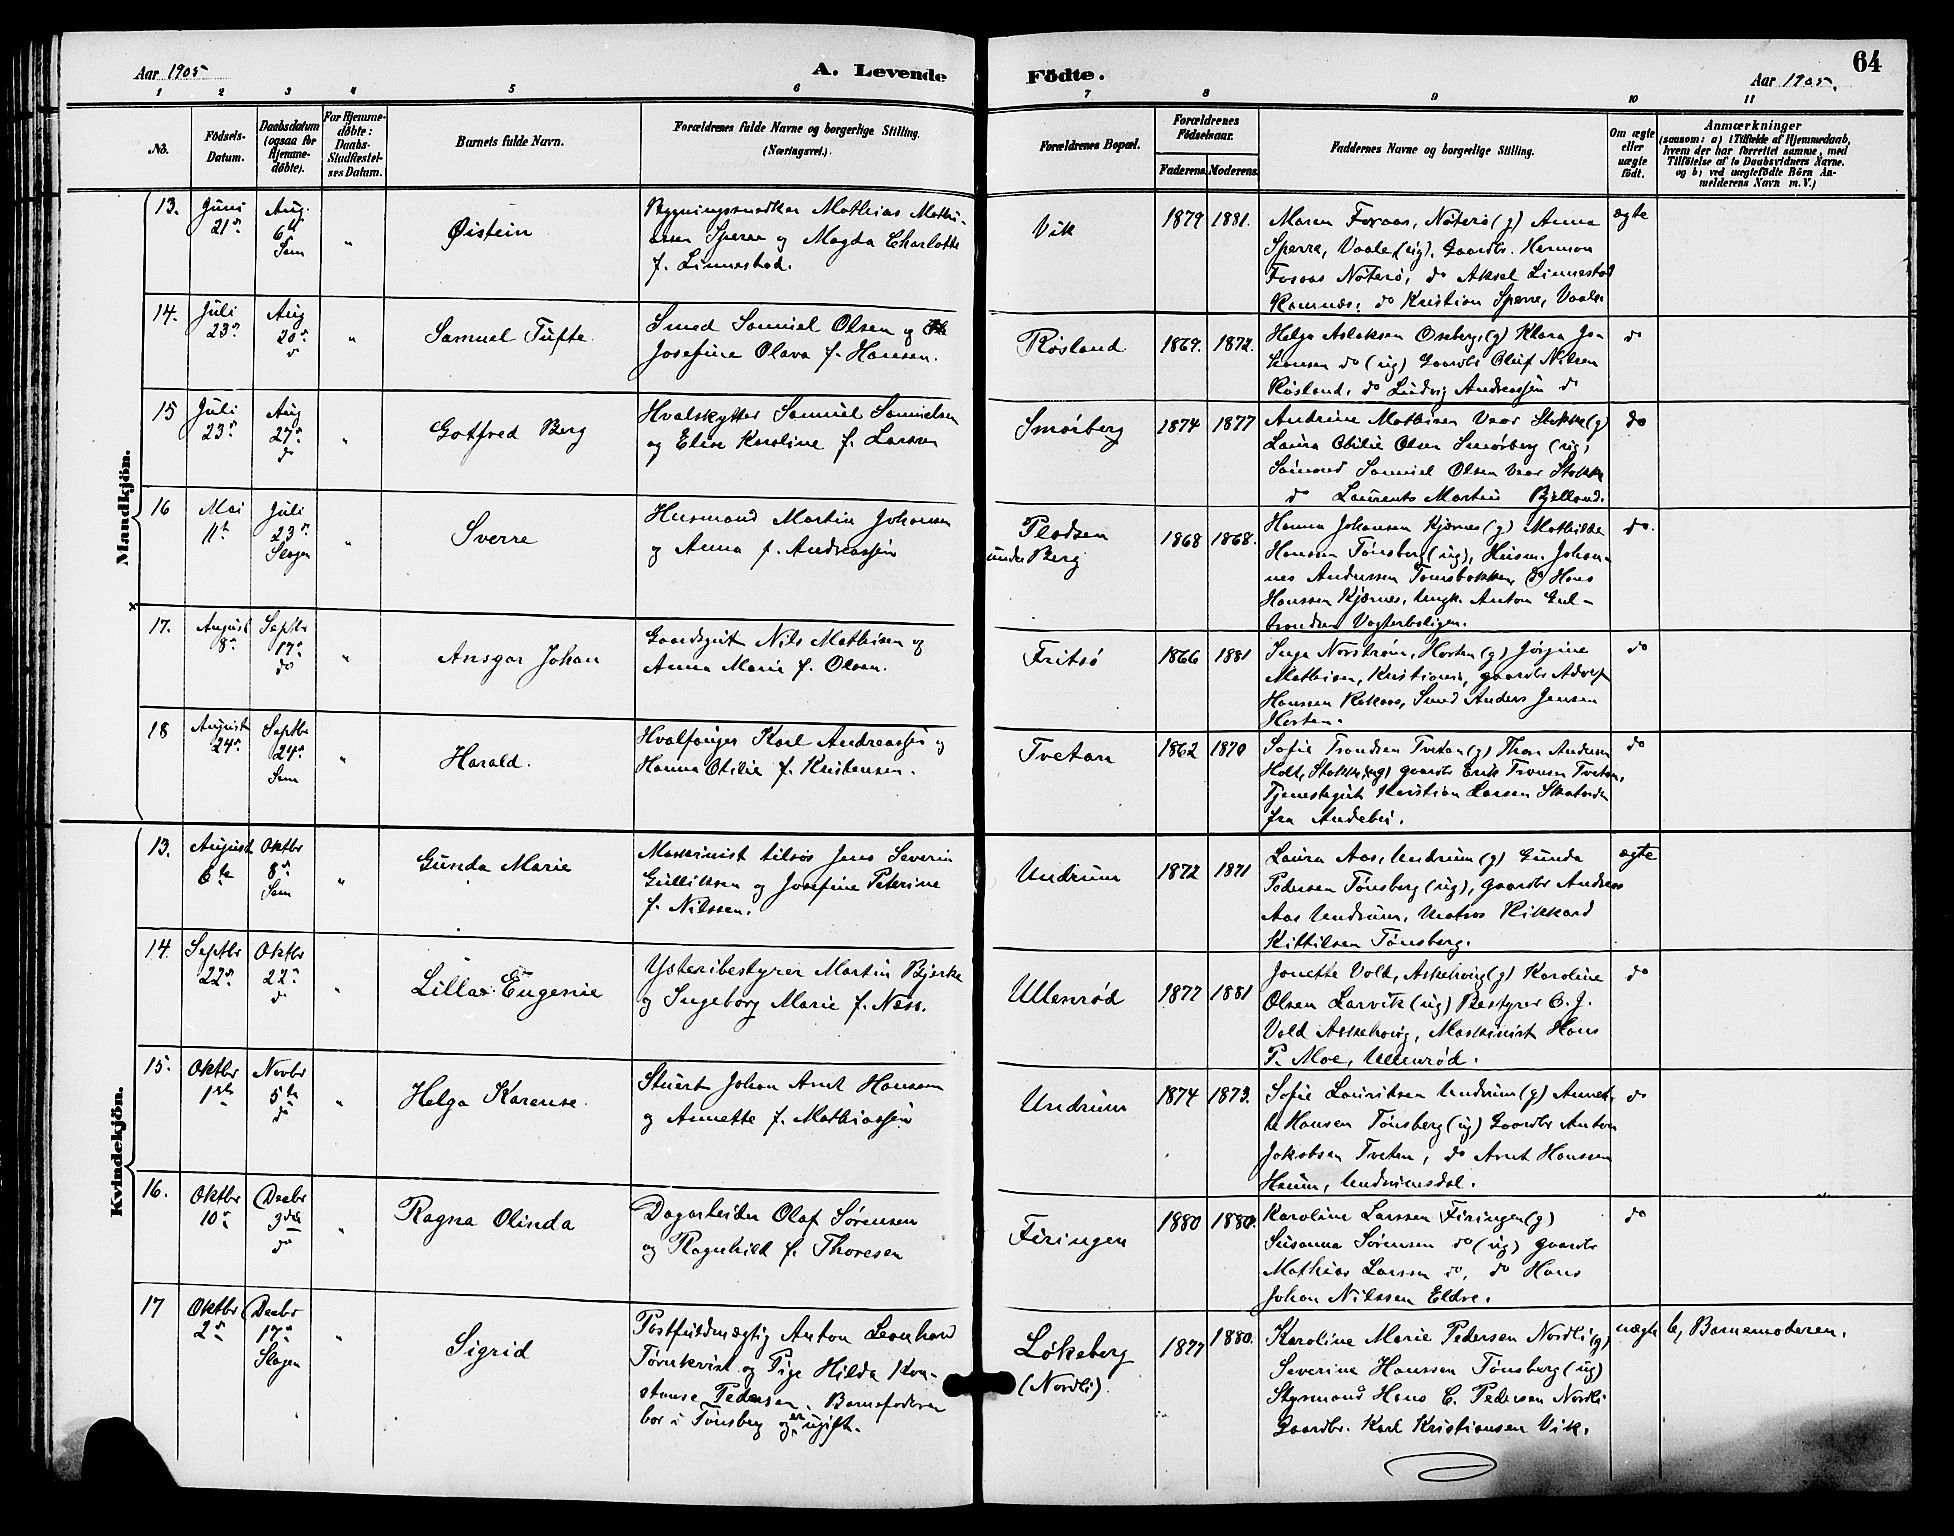 Aar 1905
A. Levende
Födte.
Aar 1905.
64
1 2 3 4 5 6 7 8 9 10 11
No.
Födsels-
Datum.
Daabsdatum
(ogsaa for
Hjemme-
döbte).
For Hjemme-
döbte:
Daabs-
Stadfæstel-
ses Datum.
Barnets fulde Navn.
Forældrenes fulde Navne og borgerlige Stilling.
(Næringsvei.)
Forældrenes Bopæl.
Forældrenes
Födselsaar.
Faderens. Moderens.
Faddernes Navne og borgerlige Stilling.
Om ægte
eller
uægte
födt.
Anmærkninger
(saasom: a) i Tilfælde af Hjemmedaab,
hvem der har forrettet samme, med
Tilföielse af to Daabsvidners Navne.
og b) ved uægtefödte Börn An-
melderens Navn m. V.)
Mandkjön.
13. Juni 21de
Aug. 6te Sem
"
Øistein
Bygningssnedker Mathias Mathi-
assen Sperre og Magda Charlotte
f. Linnestad.
Vik
1879 1881.
Maren Foraas, Nøterø (g) Anna
Sperre, Vaale (ug). Gaardbr. Herman
Foraas Nøterø, do Aksel Linnestad
Ramnæs, do Kristian Sperre, Vaale.
ægte
14. Juli 23de
Aug 20de do
"
Samuel Tufte.
Smed Samuel Olsen og
Josefine Olava f. Hansen.
Røsland
1869. 1872.
Helga Aslaksen Oseberg (g) Klara Jo-
hansen do (ug) Gaardbr Oluf Nilsen
Røsland, do Ludvig Andreassen do
do
15 Juli 23de
Aug 27de do
"
Gotfred Berg
Hvalskytter Samuel Samuelsen
og Elise Karoline f. Larsen
Smørberg
1874 1877
Andrine Mathisen Vear Stokke (g)
Laura Otilie Olsen Smørberg (ug)
Sømand Samuel Olsen Vear Stokke
do Laurents Martin Bjelland.
do
16 Mai 11te
Juli 23de Slagen
"
Sverre
Husmand Martin Johansen
og Anna f. Andreassen
Plodsen
under Berg
1868 1868.
Hanna Johansen Kjærnes (g) Mathilde
Hansen Tønsberg (ug), Husm. Johan-
nes Andersen Tomsbakken, do Hans
Hanssen Kjærnes, Ungk. Anton Gul-
brandsen Vogterboligen.
do.
17. August 8de
Septbr 17de do
"
Ansgar Johan
Gaardsgut Nils Mathisen og
Anna Marie f. Olsen.
Fritsø
1866 1881
Inga Norstrøm, Horten (g) Jørgine
Mathisen, Kristiania, gaardbr Adolf
Hanssen Rakaas, Smed Anders Jensen
Horten.
do
18 August 24de
Septbr 24de Sem
"
Harald.
Hvalfanger Karl Andreassen og
Hanna Otilie f. Kristensen.
Tvetan
1862 1870
Sofie Trondsen Tvetan (g) Thora Andersen
Holt, Stokke (ug) gaardbr Erik Tronsen Tvetan,
Tjenestegut Kristian Larsen
fra Andebu.
do
Kvindekjön.
13. August 6te
Oktbr 8de Sem
"
Gunda Marie
Maskinist tilsøs Jens Severin
Gulliksen og Josefine Peterine
f. Nilssen.
Undrum
1872 1871
Laura Aas, Undrum (g) Gunda
Pedersen Tønsberg (ug), gaardbr Andreas
Aas Undrum, Matros Rikkard
Kittilsen Tønsberg.
ægte
14. Septbr 22de
Oktbr 22de do
"
Lilla Eugenie
Ysteribestyrer Martin Bjerke
og Ingeborg Marie f. Næss.
Ullenrød
1877 1881
Jonette Vold, Askehoug (g) Karoline
Olsen Larvik (ug) Bestyrer C. J.
Vold Askehoug, Maskinist Hans
P. Moe, Ullenrød.
do
15. Oktbr 1ste
Novbr 5te do
"
Helga Karense.
Stuert Johan Arnt Hansen
og Annette f. Mathiassen
Undrum
1874 1873.
Sofie Lauritsen Undrum (g) Annet-
te Hansen Tønsberg (ug) Gaardbr Anton
Jakobsen Tveten, do Arnt Hanssen
Haum, Undrumsdal.
do
16. Oktbr 10de
Decbr 3die do
"
Ragna Olinda
Dagarbeider Olaf Sørensen
og Ragnhild f. Thoresen
Firingen
1880 1880.
Karoline Larssen Firingen (g)
Susanna Sørensen do (ug) gaardbr
Mathias Larssen do, do Hans
Johan Nilssen Eldre.
do
17 Oktbr 2den
Decbr 17de Slagen
"
Sigrid
Postfuldmægtig Anton Leonhard
Tørnkvist og Pige Hilda Kon-
stanse Pedersen. Barnefaderen
bor i Tønsberg og er ugift.
Løkeberg
(Nordli).
1877 1880.
Karoline Marie Pedersen Nordli (g)
Severine Hanssen Tønsberg (ug)
Styrmand Hans C. Pedersen Nordli
Gaardbr. Karl Kristiansen Vik.
uægte
b, Barnemoderen.